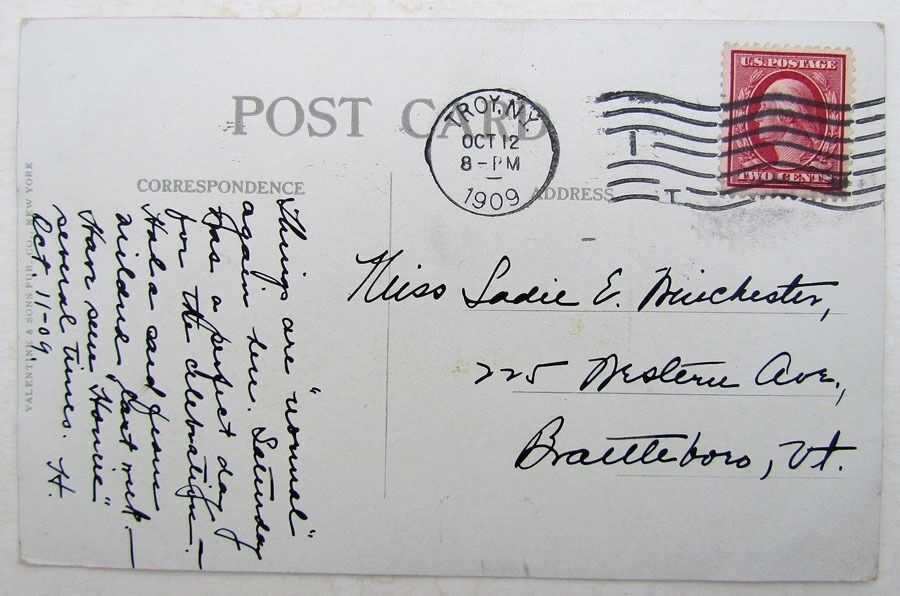 POST CARD
TROY, N.Y.
OCT 12
8-PM
1909
U.S. POSTAGE
TWO CENTS
CORRESPONDENCE
ADDRESS
VALENTINE & SONS PUB. CO. NEW YORK
Things are "normal"
again here. Saturday
was a perfect day
for the celebration. —
Had a card from
Mildred last week. —
Have seen "Howe"
several times. H.
Oct 11-09
Miss Sadie E. Winchester,
225 Western Ave.,
Brattleboro, Vt.